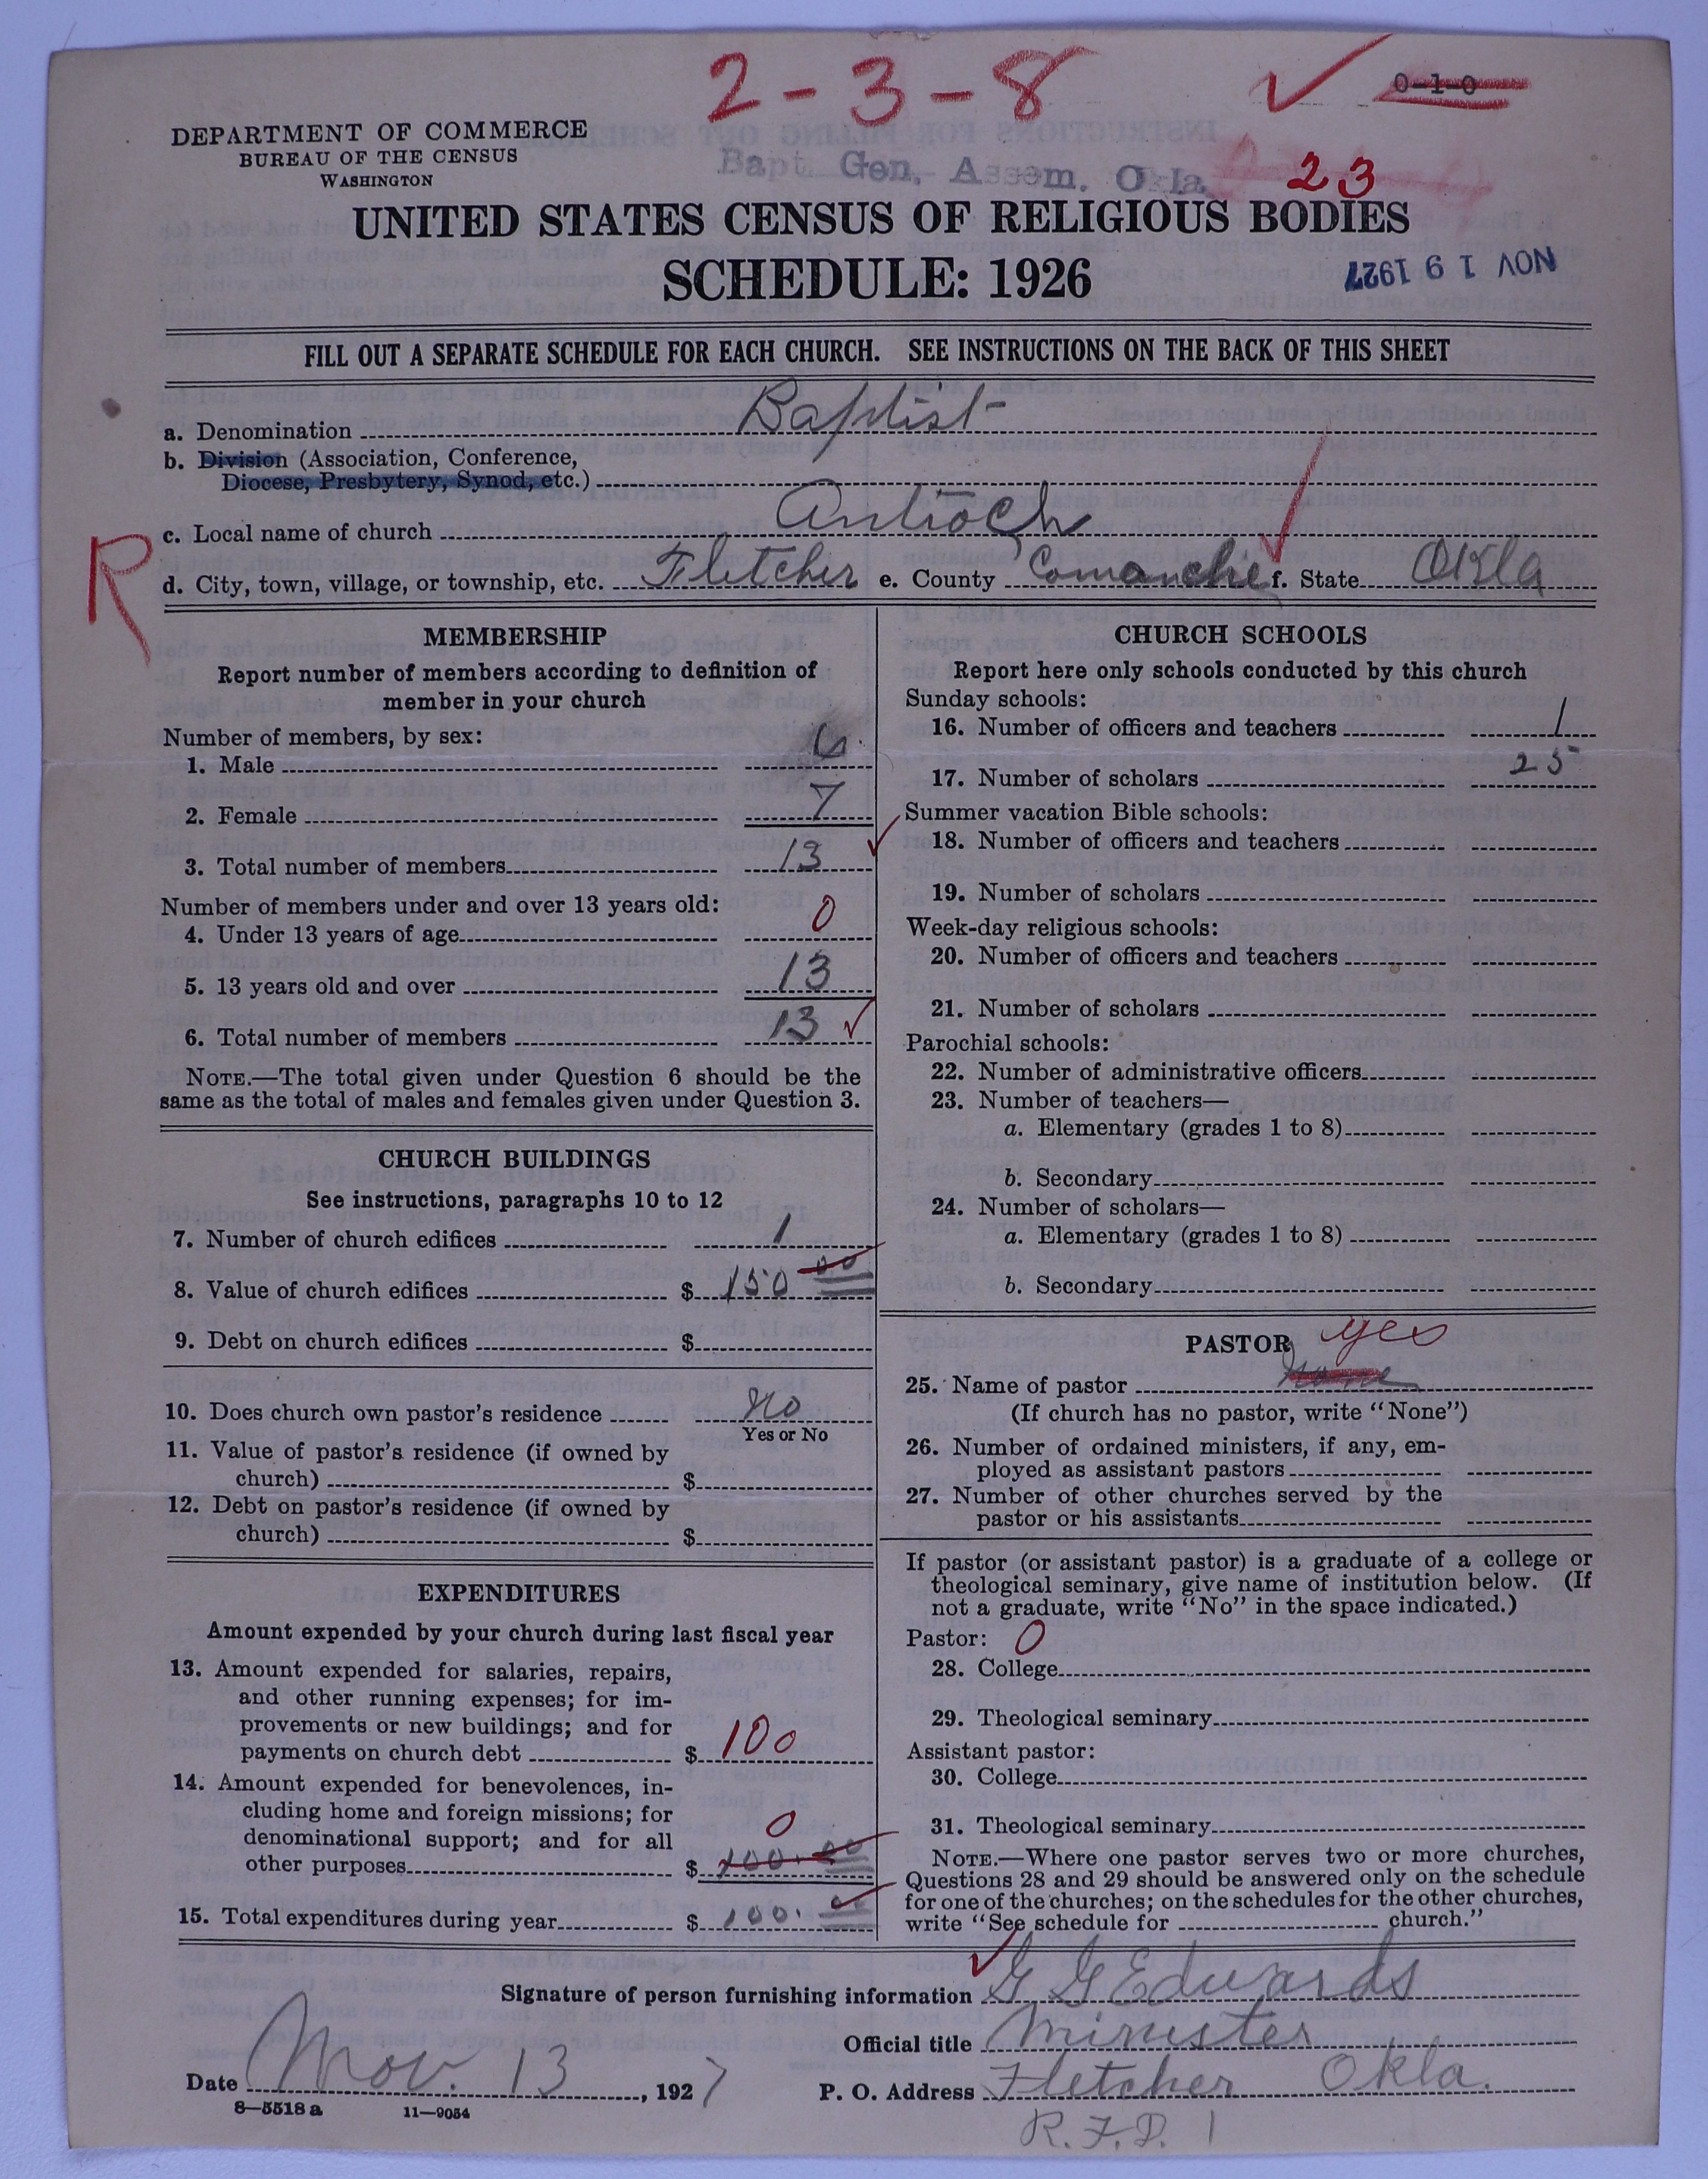 2-3-8
0-1-0
DEPARTMENT OF COMMERCE
BUREAU OF THE CENSUS
WASHINGTON
Bapt. Gen. Assem. Okla.
23
UNITED STATES CENSUS OF RELIGIOUS BODIES
SCHEDULE: 1926
NOV 19 1927
FILL OUT A SEPARATE SCHEDULE FOR EACH CHURCH. SEE INSTRUCTIONS ON THE BACK OF THIS SHEET
a. Denomination Baptist
b. Division (Association, Conference,
Diocese, Presbytery, Synod, etc.)
c. Local name of church Antioch
R
d. City, town, village, or township, etc. Fletcher e. County Comanche f. State Okla
MEMBERSHIP
Report number of members according to definition of
member in your church
Number of members, by sex:
1. Male 6
2. Female 7
3. Total number of members 13
Number of members under and over 13 years old:
4. Under 13 years of age 0
5. 13 years old and over 13
6. Total number of members 13
NOTE.—The total given under Question 6 should be the
same as the total of males and females given under Question 3.
CHURCH BUILDINGS
See instructions, paragraphs 10 to 12
7. Number of church edifices 1
8. Value of church edifices $ 150 00
9. Debt on church edifices $
10. Does church own pastor's residence No
Yes or No
11. Value of pastor's residence (if owned by
church) $
12. Debt on pastor's residence (if owned by
church) $
EXPENDITURES
Amount expended by your church during last fiscal year
13. Amount expended for salaries, repairs,
and other running expenses; for im-
provements or new buildings; and for
payments on church debt $ 100
14. Amount expended for benevolences, in-
cluding home and foreign missions; for
denominational support; and for all 0
other purposes $ 100.00
15. Total expenditures during year $ 100.00
CHURCH SCHOOLS
Report here only schools conducted by this church
Sunday schools:
16. Number of officers and teachers 1
17. Number of scholars 25
Summer vacation Bible schools:
18. Number of officers and teachers
19. Number of scholars
Week-day religious schools:
20. Number of officers and teachers
21. Number of scholars
Parochial schools:
22. Number of administrative officers
23. Number of teachers—
a. Elementary (grades 1 to 8)
b. Secondary
24. Number of scholars—
a. Elementary (grades 1 to 8)
b. Secondary
PASTOR yes
25. Name of pastor None
(If church has no pastor, write "None")
26. Number of ordained ministers, if any, em-
ployed as assistant pastors
27. Number of other churches served by the
pastor or his assistants
If pastor (or assistant pastor) is a graduate of a college or
theological seminary, give name of institution below. (If
not a graduate, write "No" in the space indicated.)
Pastor: 0
28. College
29. Theological seminary
Assistant pastor:
30. College
31. Theological seminary
NOTE.—Where one pastor serves two or more churches,
Questions 28 and 29 should be answered only on the schedule
for one of the churches; on the schedules for the other churches,
write "See schedule for church."
Signature of person furnishing information G G Edwards
Official title Minister
Date Nov. 13, 1927 P. O. Address Fletcher Okla.
8—5518 a 11—9054
R.F.D. 1